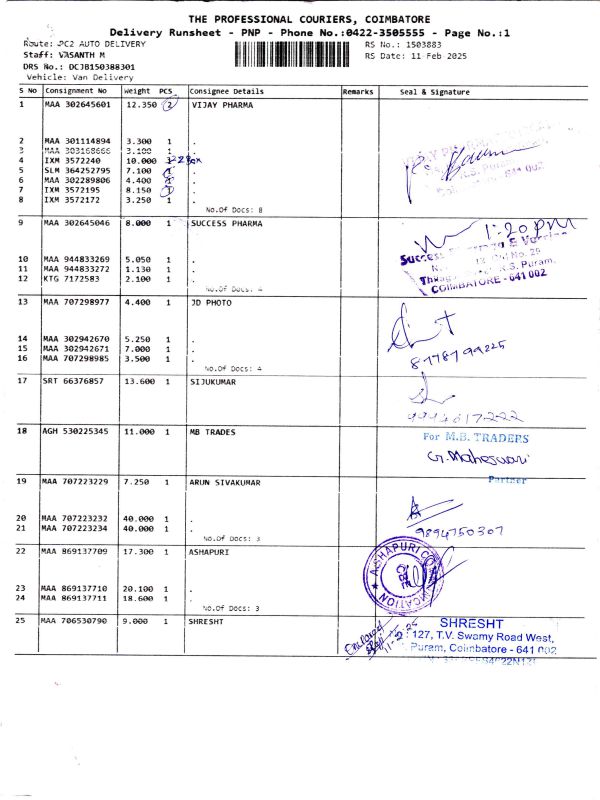 THE PROFESSIONAL COURIERS, COIMBATORE
Delivery Runsheet - PNP - Phone No.:0422-3505555 - Page No.:1
Route: PC2 AUTO DELIVERY
RS No.: 1503883
Staff: VASANTH M
RS Date: 11 Feb 2025
DRS No.: DCJB150388301
Vehicle: Van Delivery
S No Consignment No Weight PCS Consignee Details Remarks Seal & Signature
1 MAA 302645601 12.350 2 VIJAY PHARMA
2 MAA 301114894 3.300 1 .
3 MAA 303168666 3.100 1 .
4 IXM 3572240 10.000 Box .
5 SLM 364252795 7.100 1 .
6 MAA 302289806 4.400 1 .
7 IXM 3572195 8.150 1 .
8 IXM 3572172 3.250 1 .
No.Of Docs: 8
R.S. Puram,
641 002
9 MAA 302645046 8.000 1 SUCCESS PHARMA
1:20 pm
10 MAA 944833269 5.050 1 .
11 MAA 944833272 1.130 1 .
12 KTG 7172583 2.100 1 .
No.Of Docs: 4
Success
No. 29
R.S. Puram,
COIMBATORE - 641 002
13 MAA 707298977 4.400 1 JD PHOTO
14 MAA 302942670 5.250 1 .
15 MAA 302942671 7.000 1 .
16 MAA 707298985 3.500 1 .
No.Of Docs: 4
8778799225
17 SRT 66376857 13.600 1 SIJUKUMAR
18 AGH 530225345 11.000 1 MB TRADES
For M.B. TRADERS
G. Maheswari
Partner
19 MAA 707223229 7.250 1 ARUN SIVAKUMAR
20 MAA 707223232 40.000 1 .
21 MAA 707223234 40.000 1 .
No.Of Docs: 3
9894750307
22 MAA 869137709 17.300 1 ASHAPURI
23 MAA 869137710 20.100 1 .
24 MAA 869137711 18.600 1 .
No.Of Docs: 3
ASHAPURI COMMUNICATION
25 MAA 706530790 9.000 1 SHRESHT
11-2-25
SHRESHT
127, T.V. Swamy Road West,
Puram, Coimbatore - 641 002